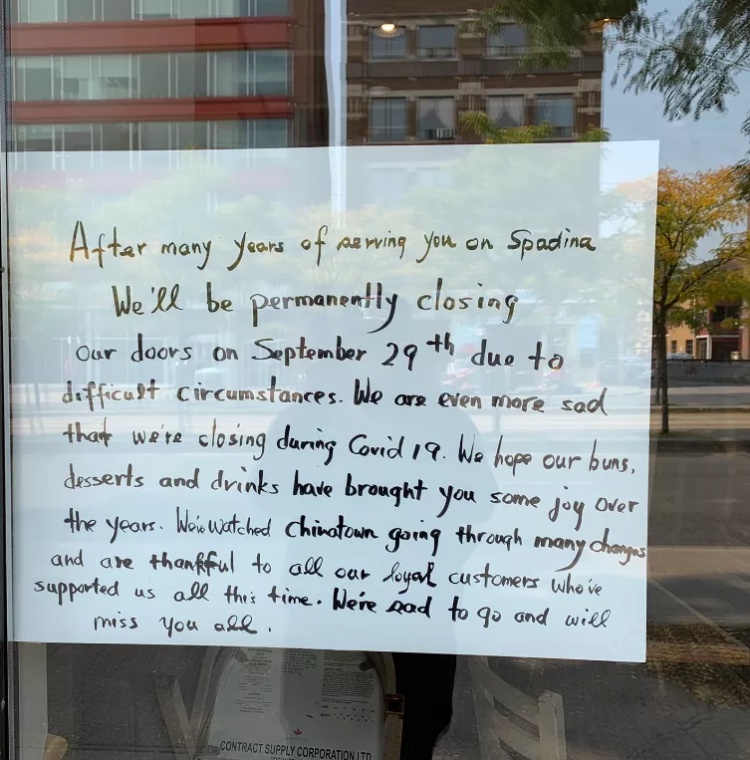 After many years of serving you on Spadina
We'll be permanently closing
our doors on September 29th due to
difficult circumstances. We are even more sad
that we're closing during Covid 19. We hope our buns,
desserts and drinks have brought you some joy over
the years. We've watched Chinatown going through many changes
and are thankful to all our loyal customers who've
supported us all this time. We're sad to go and will
miss you all.
CONTRACT SUPPLY CORPORATION LTD